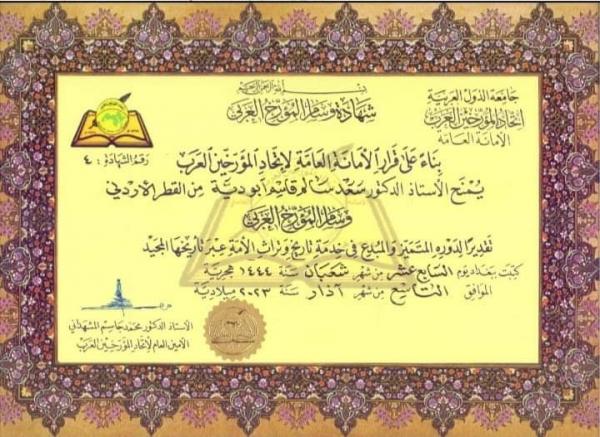 بسم الله الرحمن الرحيم
جامعة الدول العربية
اتحاد المؤرخين العرب
الأمانة العامة
شهادة وسام المؤرخ العربي
رقم الشهادة : ٤
بناءً على قرار الأمانة العامة لاتحاد المؤرخين العرب
يمنح الأستاذ الدكتور سعد سالم قاسم أبودية من القطر الأردني
وسام المؤرخ العربي
تقديرًا لدوره المتميز والمبدع في خدمة تاريخ وتراث الأمة عبر تأريخها المجيد
كتبت ببغداد يوم السابع عشر من شهر شعبان سنة ١٤٤٤ هجرية
الموافق التاسع من شهر آذار سنة ٢٠٢٣ ميلادية
الأستاذ الدكتور محمد جاسم المشهداني
الأمين العام لاتحاد المؤرخين العرب